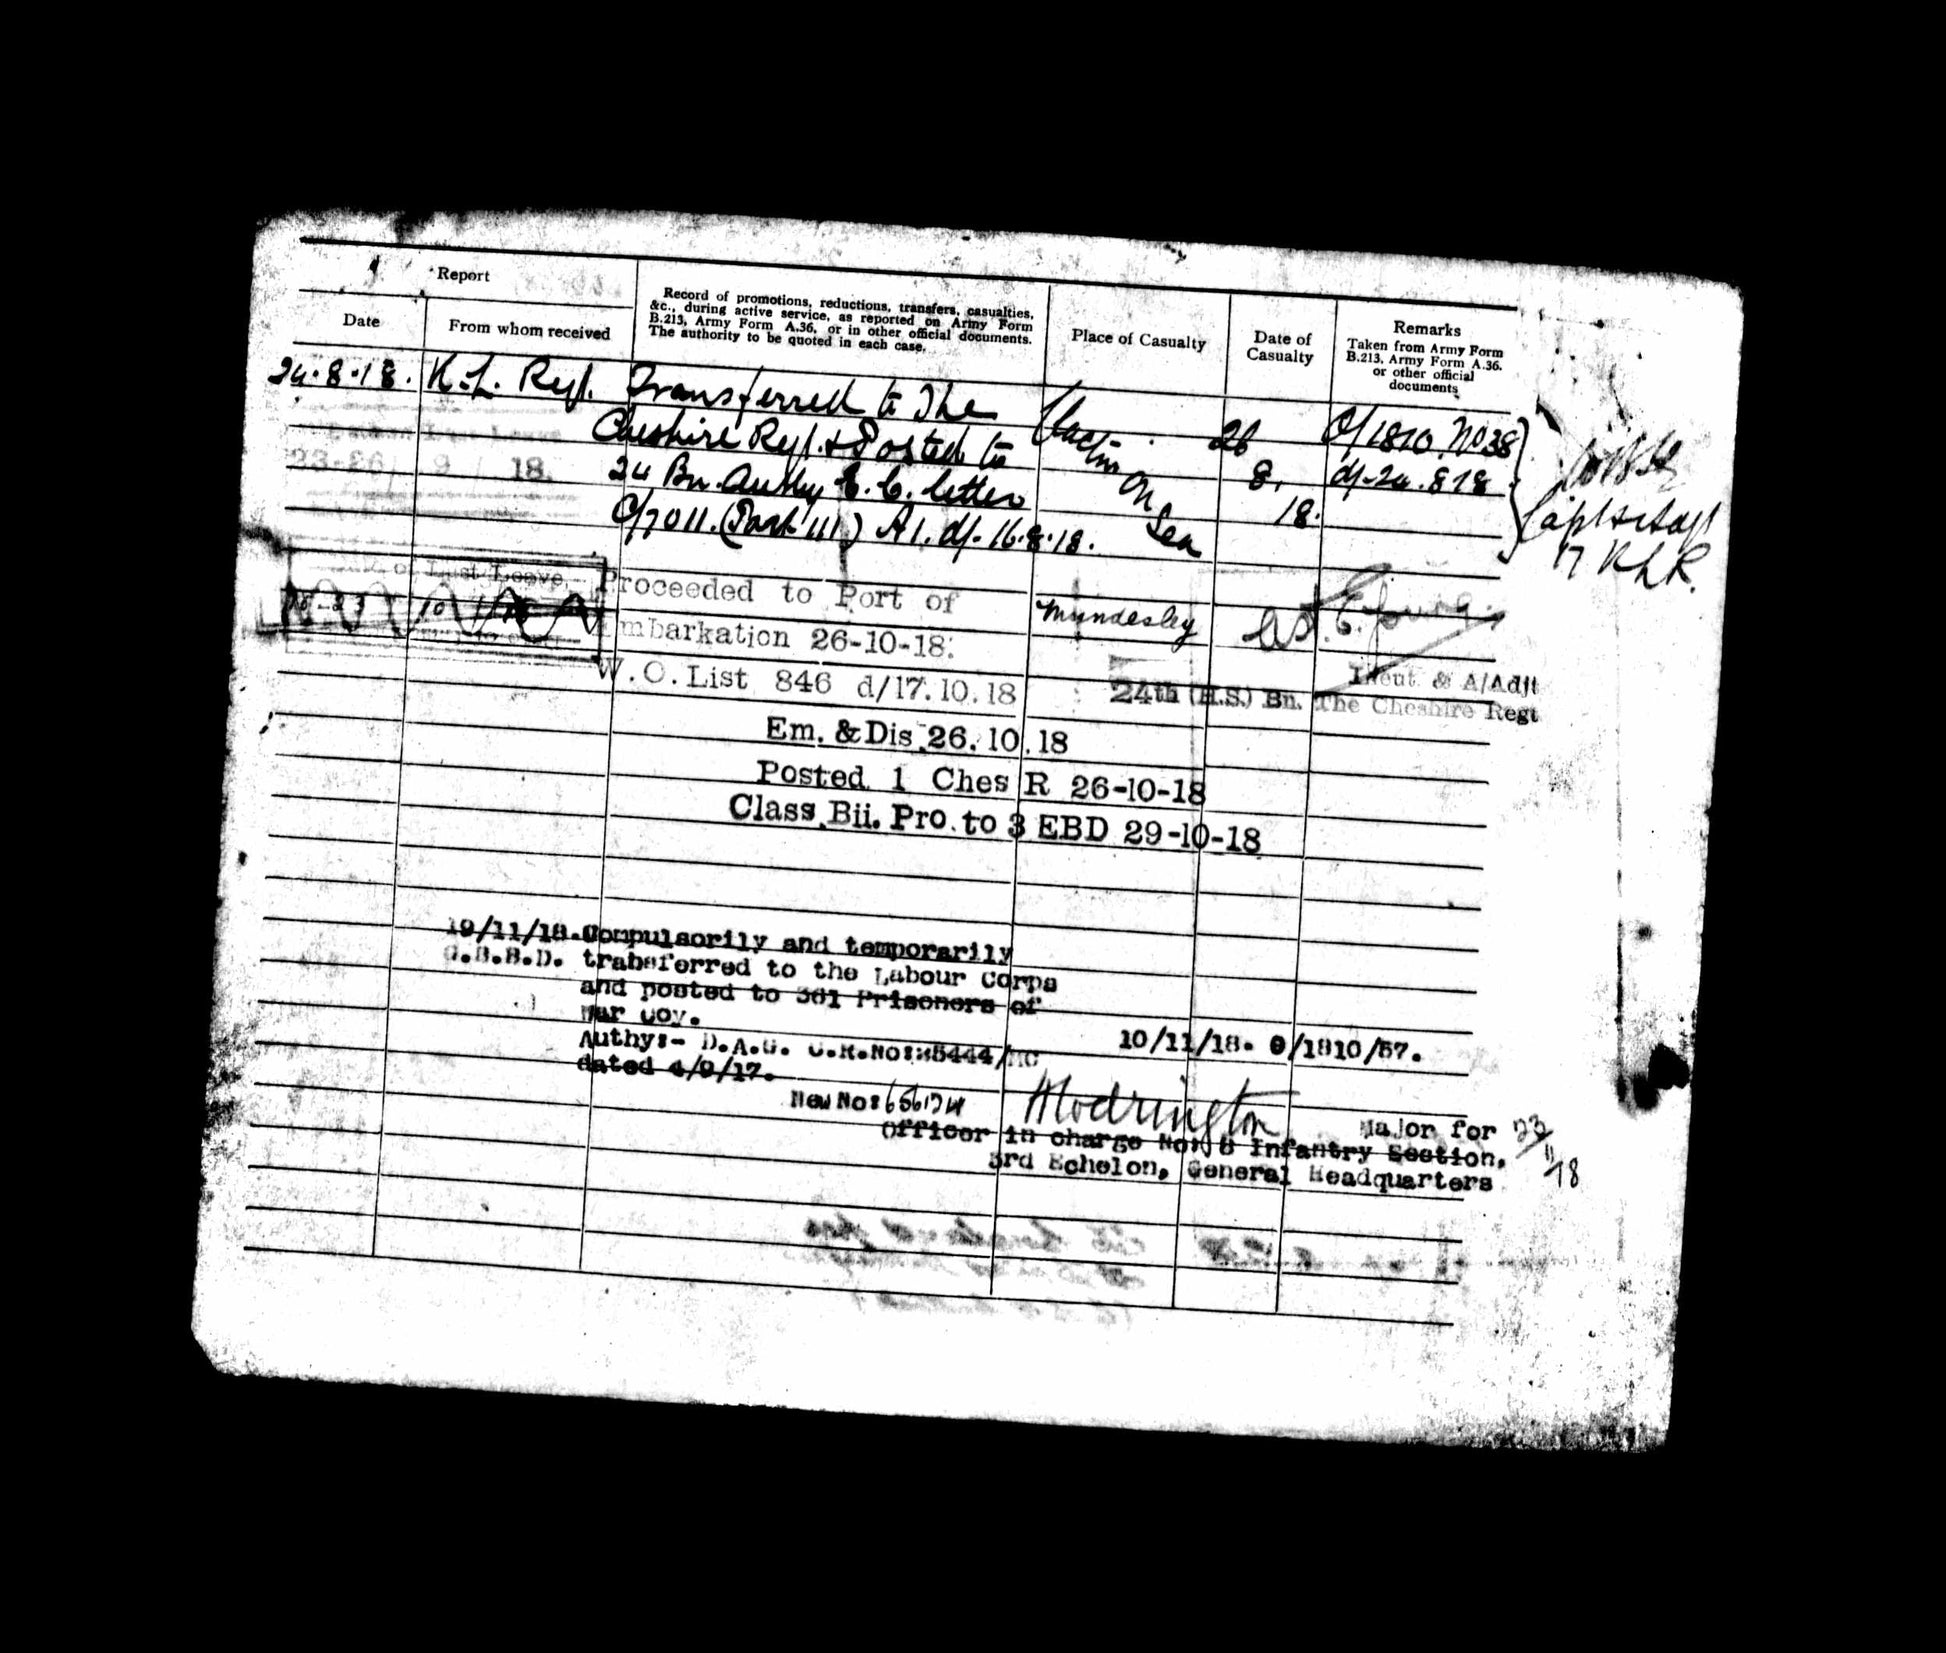 Report
Date
From whom received
Record of promotions, reductions, transfers, casualties,
&c., during active service, as reported on Army Form
B.213, Army Form A.36, or in other official documents.
The authority to be quoted in each case.
Place of Casualty
Date of
Casualty
Remarks
Taken from Army Form
B.213, Army Form A.36.
or other official
documents
24.8.18. K.L. Regt. Transferred to The
Cheshire Regt. & Posted to
24 Bn. Authy E.C. letter
C/7011. (Part III) A1. d/. 16.8.18.
Clacton
On
Sea
26
8.
18.
O/1810. No 38
d/- 24.8.18
Capt & Adjt
17 KLR.
23-26 9 18.
of Last Leave
Proceeded to Port of
Embarkation 26-10-18.
W.O.List 846 d/17.10.18
Mundesley
Lieut. & A/Adjt
24th (H.S.) Bn. The Cheshire Regt
Em. & Dis 26.10.18
Posted 1 Ches R 26-10-18
Class Bii. Pro. to 3 EBD 29-10-18
19/11/18. Compulsorily and temporarily
trabsferred to the Labour Corps
and posted to 361 Prisoners of
War Coy.
Authy:- D.A.G.
dated 4/9/17.
10/11/18. O/1810/57.
New No:
Major for
Officer in charge No: 8 Infantry Section,
3rd Echelon, General Headquarters
23/11/18